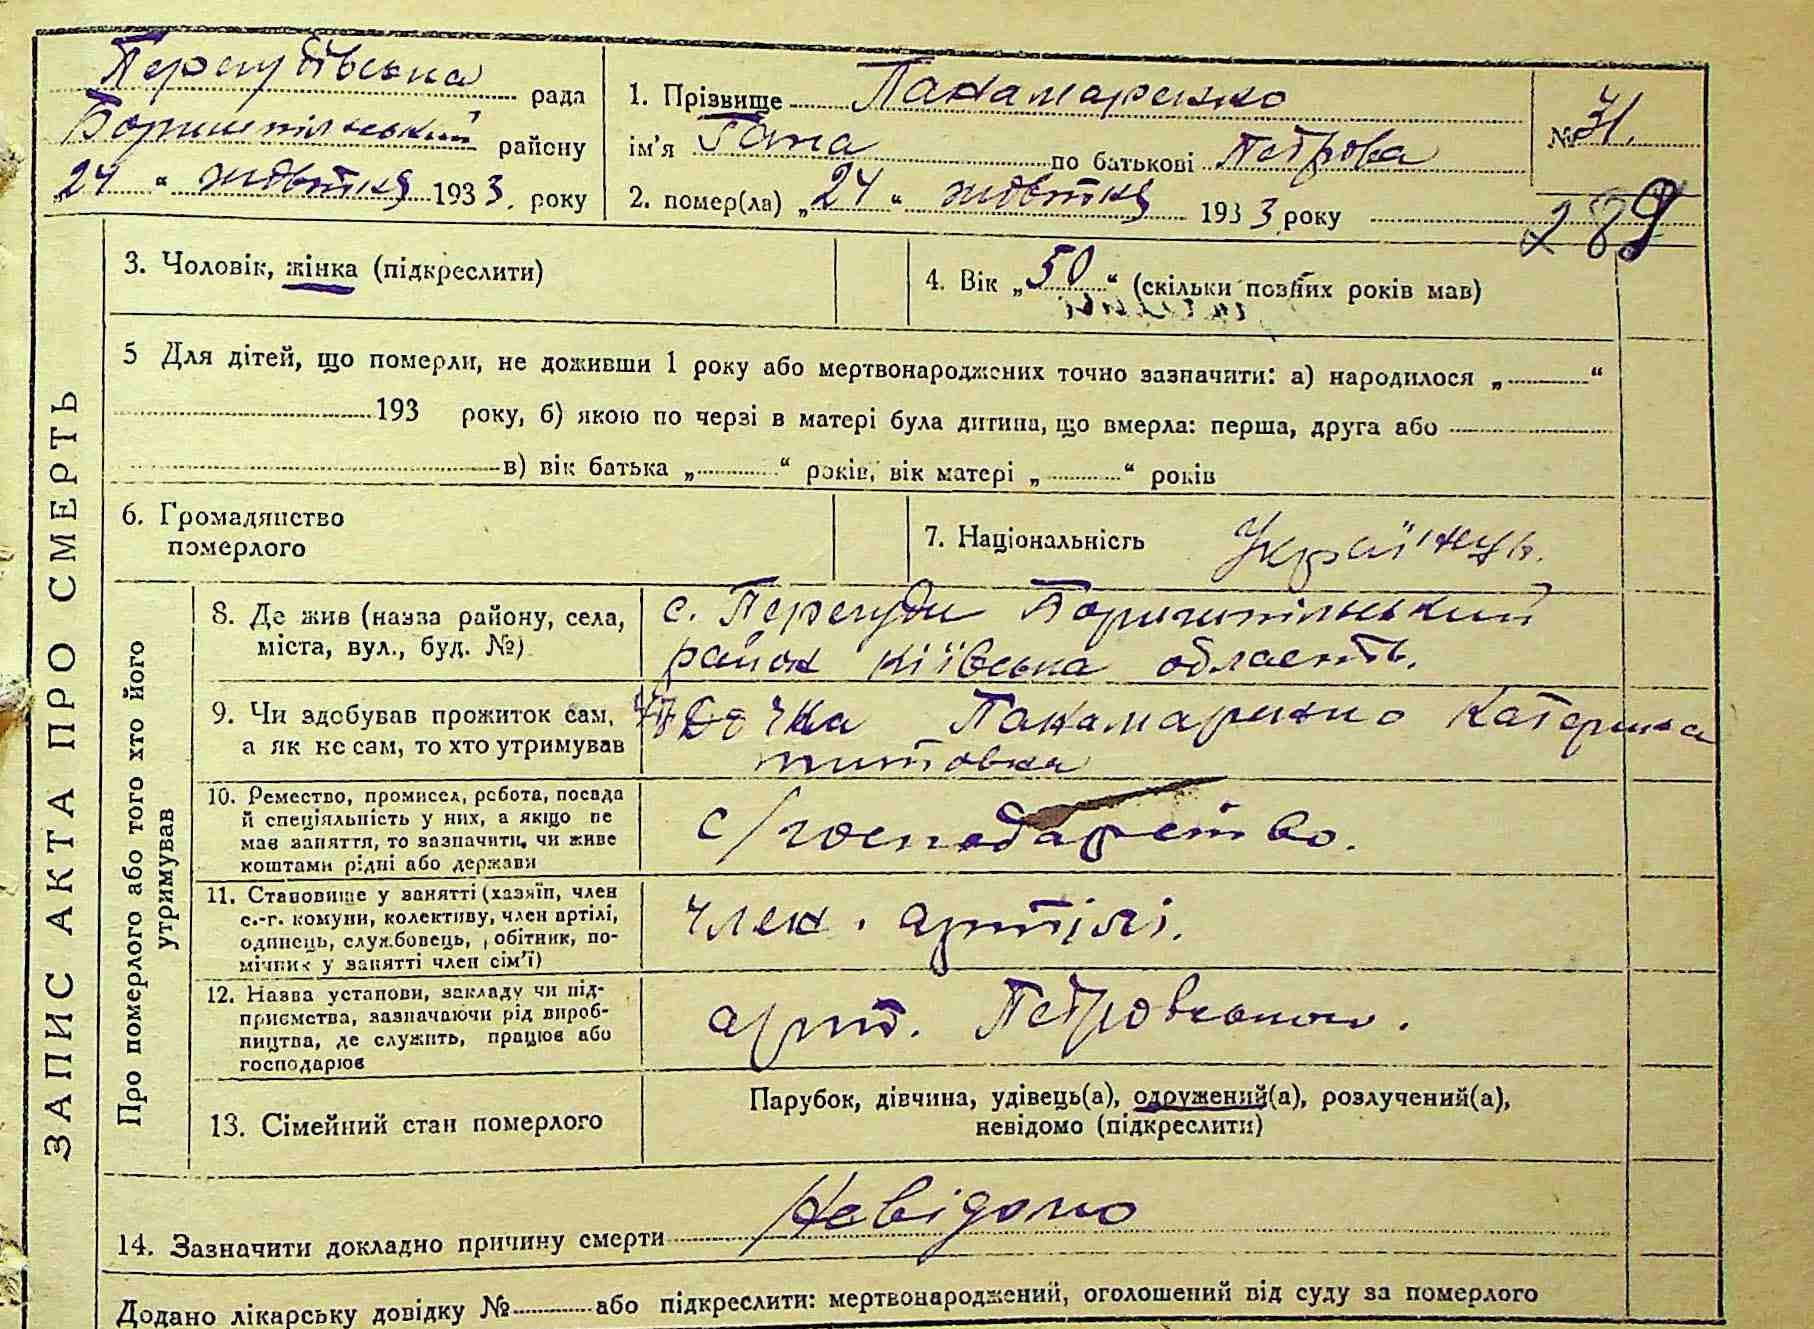 Перегудівська рада
Боришпільський району
„24 “ жовтня 1933. року
1. Прізвище Панамаренко
ім'я Гана по батькові Петрова
2. помер(ла) „24“ жовтня 1933 року
№ 31.
289
ЗАПИС АКТА ПРО СМЕРТЬ
3. Чоловік, жінка (підкреслити)
4. Вік „50“ (скільки повних років мав)
5 Для дітей, що померли, не доживши 1 року або мертвонароджених точно зазначити: а) народилося „ “
193 року, б) якою по черзі в матері була дитина, що вмерла: перша, друга або
в) вік батька „ “ років, вік матері „ “ років
6. Громадянство
померлого
7. Національність Українць.
Про померлого або того хто його
утримував
8. Де жив (назва району, села,
міста, вул., буд. №)
с. Перегуди Боришпільський
район Київська область.
9. Чи здобував прожиток сам,
а як не сам, то хто утримував
Дочка Панамаренко Катерина
титовна
10. Ремество, промисел, робота, посада
й спеціяльність у них, а якщо не
мав заняття, то зазначити, чи живе
коштами рідні або держави
с/господарство.
11. Становище у занятті (хазяїн, член
с.-г. комуни, колективу, член артілі,
одинець, службовець, робітник, по-
мічник у занятті член сім'ї)
член. артілі.
12. Назва установи, закладу чи під-
приємства, зазначаючи рід вироб-
ництва, де служить, працює або
господарює
арт. Петровського.
13. Сімейний стан померлого
Парубок, дівчина, удівець(а), одружений(а), розлучений(а),
невідомо (підкреслити)
14. Зазначити докладно причину смерти Невідомо
Додано лікарську довідку № або підкреслити: мертвонароджений, оголошений від суду за померлого